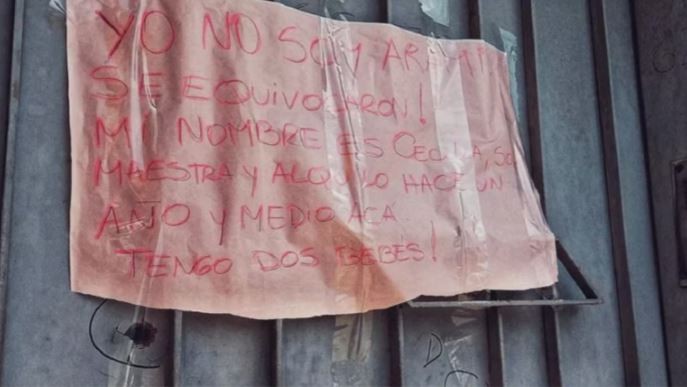 YO NO SOY
SE EQUIVOCARON!
MI NOMBRE ES CECILIA, SOY
MAESTRA Y ALQUILO HACE UN
AÑO Y MEDIO ACA.
TENGO DOS BEBES!